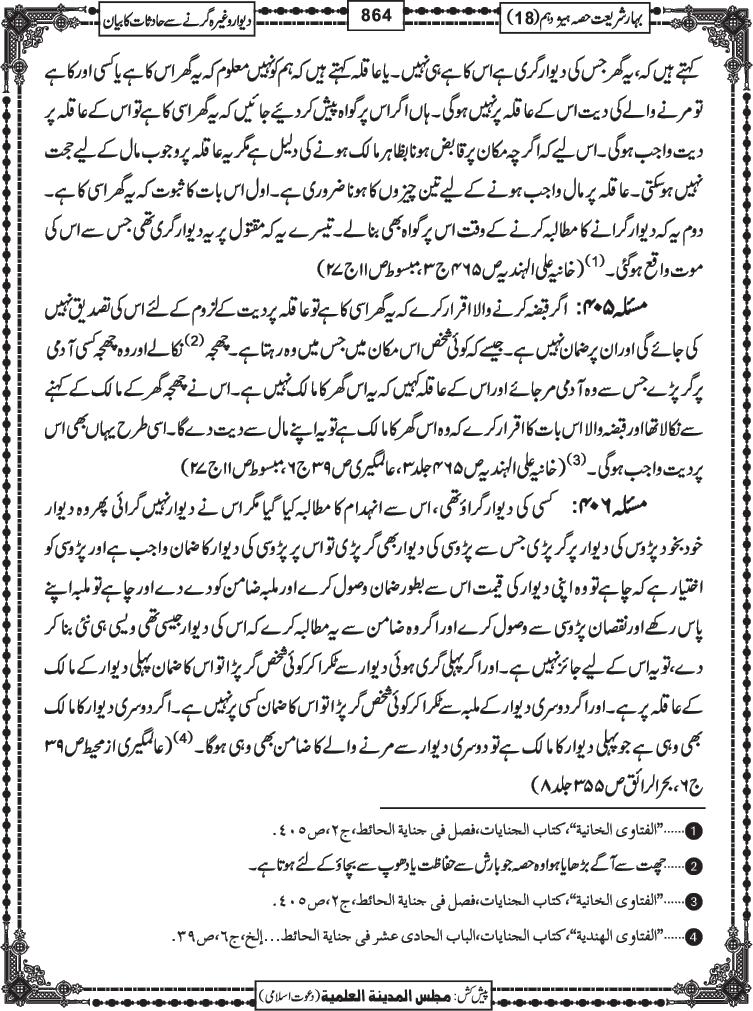 بہارِ شریعت حصہ ہیژدہم (18)
864
دیوار وغیرہ گرنے سے حادثات کا بیان
کہتے ہیں کہ، یہ گھر جس کی دیوار گری ہے اس کا ہے ہی نہیں۔ یا عاقلہ کہتے ہیں کہ ہم کو نہیں معلوم کہ یہ گھر اس کا ہے یا کسی اور کا ہے
تو مرنے والے کی دیت اس کے عاقلہ پر نہیں ہوگی۔ ہاں اگر اس پر گواہ پیش کردیئے جائیں کہ یہ گھر اسی کا ہے تو اس کے عاقلہ پر
دیت واجب ہوگی۔ اس لیے کہ اگرچہ مکان پر قابض ہونا بظاہر مالک ہونے کی دلیل ہے مگر یہ عاقلہ پر وجوب مال کے لیے حجت
نہیں ہوسکتی۔ عاقلہ پر مال واجب ہونے کے لیے تین چیزوں کا ہونا ضروری ہے۔ اول اس بات کا ثبوت کہ یہ گھر اسی کا ہے۔
دوم یہ کہ دیوار گرانے کا مطالبہ کرنے کے وقت اس پر گواہ بھی بنالے۔ تیسرے یہ کہ مقتول پر یہ دیوار گری تھی جس سے اس کی
موت واقع ہوگئی۔(1) (خانیہ علی الہندیہ ص ۴۶۵ ج ۳، مبسوط ص ۱۱ ج ۲۷)
مسئلہ ۴۰۵: اگر قبضہ کرنے والا اقرار کرے کہ یہ گھر اسی کا ہے تو عاقلہ پر دیت کے لزوم کے لئے اس کی تصدیق نہیں
کی جائے گی اور ان پر ضمان نہیں ہے۔ جیسے کہ کوئی شخص اس مکان میں جس میں وہ رہتا ہے۔ چھجہ(2) نکالے اور وہ چھجہ کسی آدمی
پر گر پڑے جس سے وہ آدمی مرجائے اور اس کے عاقلہ کہیں کہ یہ اس گھر کا مالک نہیں ہے۔ اس نے چھجہ گھر کے مالک کے کہنے
سے نکالا تھا اور قبضہ والا اس بات کا اقرار کرے کہ وہ اس گھر کا مالک ہے تو یہ اپنے مال سے دیت دے گا۔ اسی طرح یہاں بھی اس
پر دیت واجب ہوگی۔(3) (خانیہ علی الہندیہ ص ۴۶۵ جلد ۳، عالمگیری ص ۳۹ ج ۶، مبسوط ص ۱۱ ج ۲۷)
مسئلہ ۴۰۶: کسی کی دیوار گراؤ تھی، اس سے انہدام کا مطالبہ کیا گیا مگر اس نے دیوار نہیں گرائی پھر وہ دیوار
خود بخود پڑوس کی دیوار پر گر پڑی جس سے پڑوسی کی دیوار بھی گر پڑی تو اس پر پڑوسی کی دیوار کا ضمان واجب ہے اور پڑوسی کو
اختیار ہے کہ چاہے تو وہ اپنی دیوار کی قیمت اس سے بطور ضمان وصول کرے اور ملبہ ضامن کو دے دے اور چاہے تو ملبہ اپنے
پاس رکھے اور نقصان پڑوسی سے وصول کرے اور اگر وہ ضامن سے یہ مطالبہ کرے کہ اس کی دیوار جیسی تھی ویسی ہی نئی بنا کر
دے، تو یہ اس کے لیے جائز نہیں ہے۔ اور اگر پہلی گری ہوئی دیوار سے ٹکرا کر کوئی شخص گر پڑا تو اس کا ضمان پہلی دیوار کے مالک
کے عاقلہ پر ہے۔ اور اگر دوسری دیوار کے ملبہ سے ٹکرا کر کوئی شخص گر پڑا تو اس کا ضمان کسی پر نہیں ہے۔ اگر دوسری دیوار کا مالک
بھی وہی ہے جو پہلی دیوار کا مالک ہے تو دوسری دیوار سے مرنے والے کا ضامن بھی وہی ہوگا۔(4) (عالمگیری از محیط ص ۳۹
ج ۶، بحر الرائق ص ۳۵۵ جلد ۸)
1 ......"الفتاوى الخانية"، كتاب الجنايات، فصل فى جناية الحائط، ج٢، ص٤٠٥.
2 ......چھت سے آگے بڑھایا ہوا وہ حصہ جو بارش سے حفاظت یا دھوپ سے بچاؤ کے لئے ہوتا ہے۔
3 ......"الفتاوى الخانية"، كتاب الجنايات، فصل فى جناية الحائط، ج٢، ص٤٠٥.
4 ......"الفتاوى الهندية"، كتاب الجنايات، الباب الحادى عشر فى جناية الحائط...إلخ، ج٦، ص٣٩.
پیش کش: مجلس المدينة العلمية (دعوتِ اسلامی)